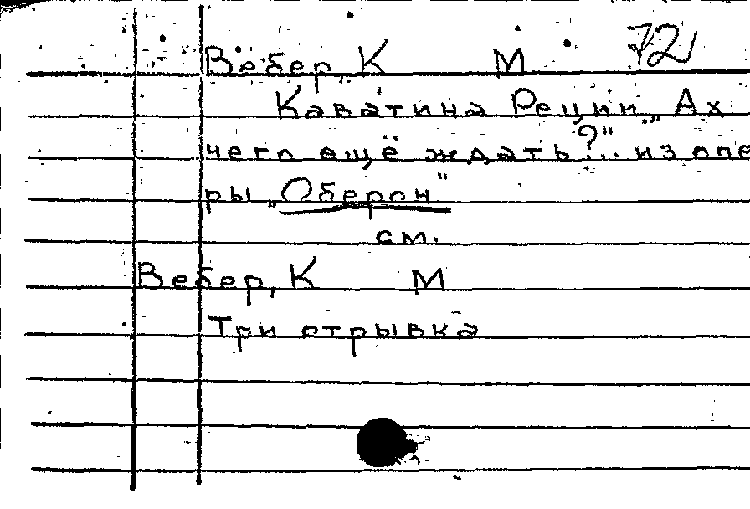 Вебер, К М 72
Каватина Реции „Ах
чего ещё ждать?"... из опе
ры „Оберон"
см.
Вебер, К М
Три отрывка